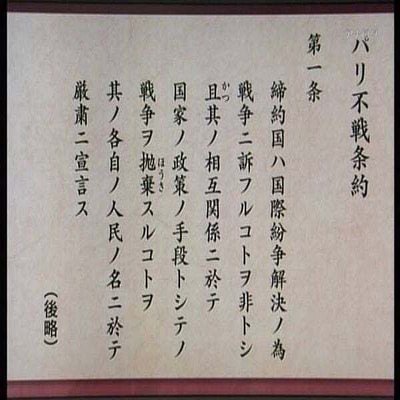 パリ不戦条約
第一条
締約国ハ国際紛争解決ノ為
戦争ニ訴フルコトヲ非トシ
且其ノ相互関係ニ於テ
かつ
国家ノ政策ノ手段トシテノ
戦争ヲ抛棄スルコトヲ
ほうき
其ノ各自ノ人民ノ名ニ於テ
厳粛ニ宣言ス
(後略)